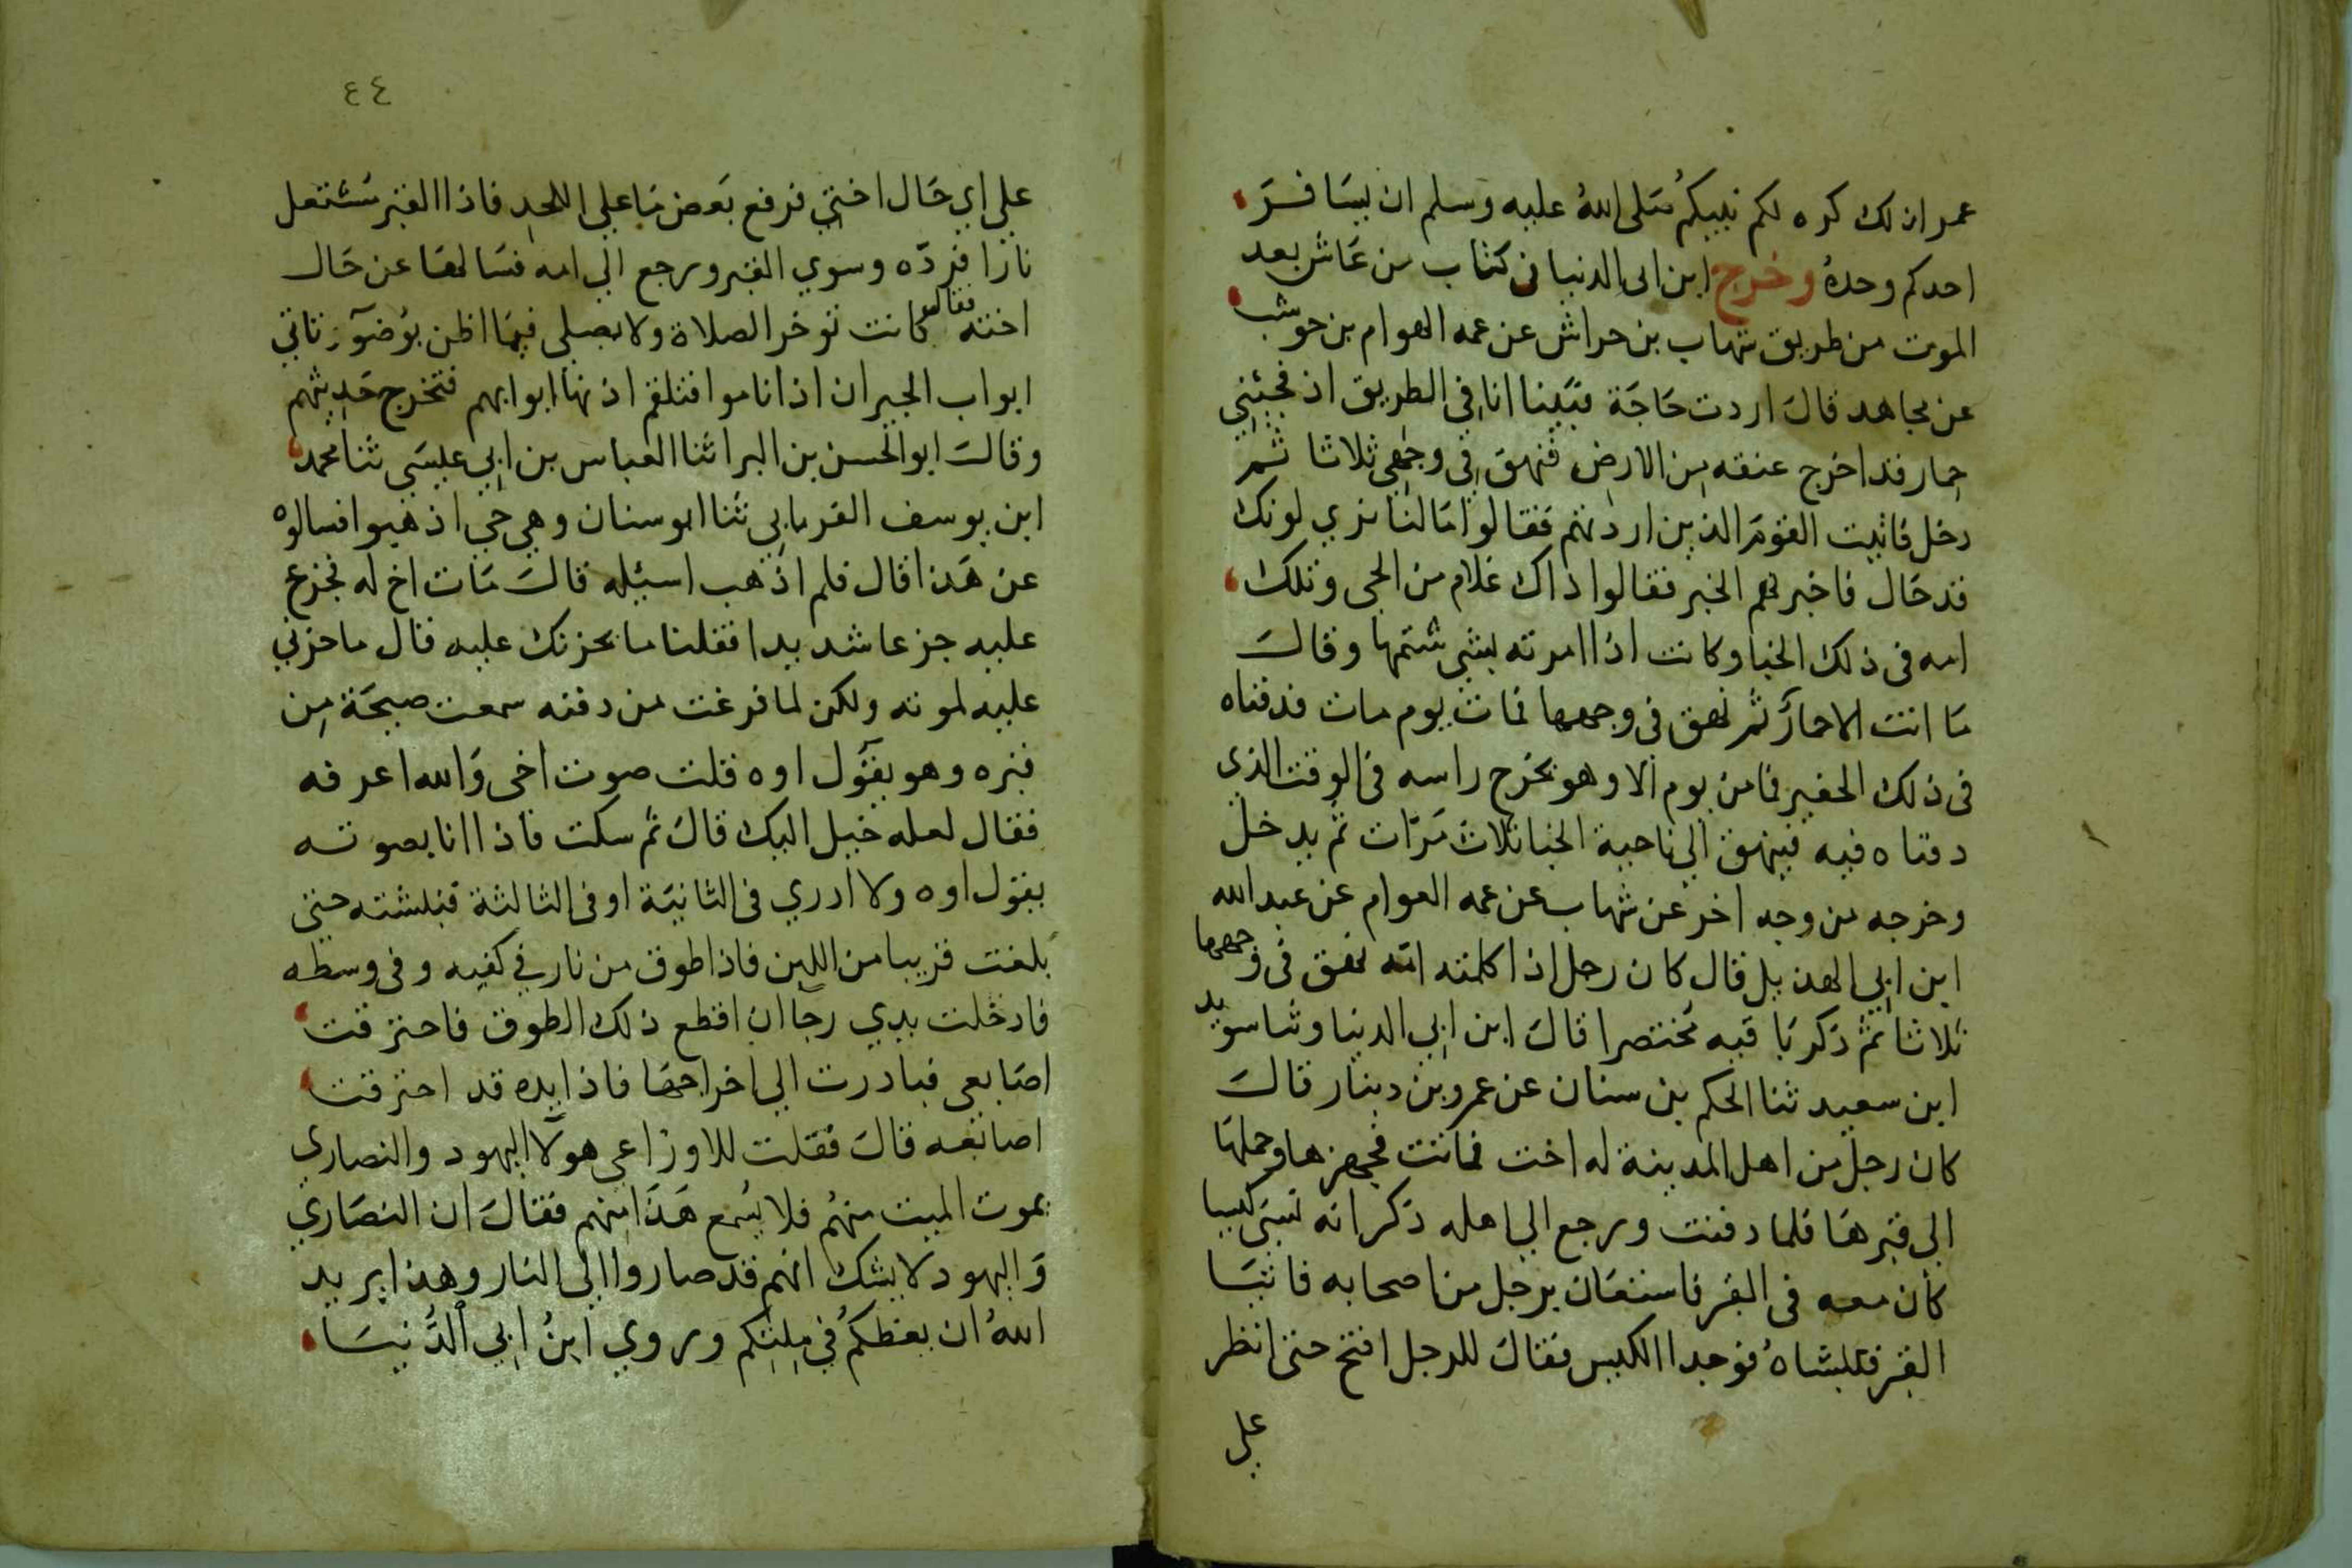 عمر لذلك كره لكم نبيكم صلى الله عليه وسلم ان يسافر
احدكم وحده وخرج ابن ابى الدنيا فى كتاب من عاش بعد
الموت من طريق شهاب بن حراش عن عمه العوام بن حوشب
عن مجاهد قال اردت حاجة فبينا انا فى الطريق اذ فجئنى
حمار قد اخرج عنقه من الارض فنهق فى وجهى ثلاثا ثم
دخل فاتيت القوم الذين اردتهم فقالوا ما لنا نرى لونك
قد حال فاخبرتهم الخبر فقالوا ذاك غلام من الحى وتلك
امه فى ذلك الخبا وكانت اذا امرته بشى شتمها وقال
ما انت الا حمار ثم نهق فى وجهها فمات يوم مات فدفناه
فى ذلك الحفير فما من يوم الا وهو يخرج راسه فى الوقت الذى
دفناه فيه فينهق الى ناحية الخبا ثلاث مرات ثم يدخل
وخرجه من وجه اخر عن شهاب عن عمه العوام عن عبد الله
ابن ابي الهذيل قال كان رجل اذا كلمته امه نهق فى وجهها
ثلاثا ثم ذكر باقيه مختصرا قال ابن ابي الدنيا وثنا سويد
ابن سعيد ثنا الحكم بن سنان عن عمرو بن دينار قال
كان رجل من اهل المدينة له اخت فماتت فجهزها وحملها
الى قبرها فلما دفنت ورجع الي اهله ذكر انه نسى كيسا
كان معه فى القبر فاستعان برجل من اصحابه فاتيا
القبر فنبشاه فوجدا الكيس فقال للرجل افتح حتى انظر
علي
٤٤
علي اي حال اختي فرفع بعض ما علي اللحد فاذا القبر مشتعل
نارا فرده وسوي القبر ورجع الي امه فسالها عن حال
اخته فقالت كانت توخر الصلاة ولا تصلى فيما اظن بوضوء وتاتي
ابواب الجيران اذا ناموا فتلقم اذنها ابوابهم فتخرج حديثهم
وقال ابو الحسن بن البرا ثنا العباس بن ابي عيسي ثنا محمد
ابن يوسف الفريابي ثنا ابو سنان وهي حي اذهبوا فسالوه
عن هذا قال فلم اذهب اسئله قال مات اخ له فجزع
عليه جزعا شديدا فقلنا ما يحزنك عليه قال ما حزني
عليه لموته ولكن لما فرغت من دفنه سمعت صيحة من
قبره وهو يقول اوه قلت صوت اخى والله اعرفه
فقال لعله خيل اليك قال ثم سكت فاذا انا بصوته
يقول اوه ولا ادري فى الثانية او فى الثالثة فنبشته حتى
بلغت قريبا من اللبن فاذا طوق من نار في كفيه وفى وسطه
فادخلت يدي رجا ان اقطع ذلك الطوق فاحترقت
اصابعى فبادرت الي اخراجها فاذا يده قد احترقت
اصابعه قال فقلت للاوزاعى هولا اليهود والنصاري
يموت الميت منهم فلا يسمع هذا منهم فقال ان النصاري
واليهود لا يشك انهم قد صاروا الى النار وهذا يريد
الله ان يعظكم في ملتكم وروي ابن ابي الدنيا